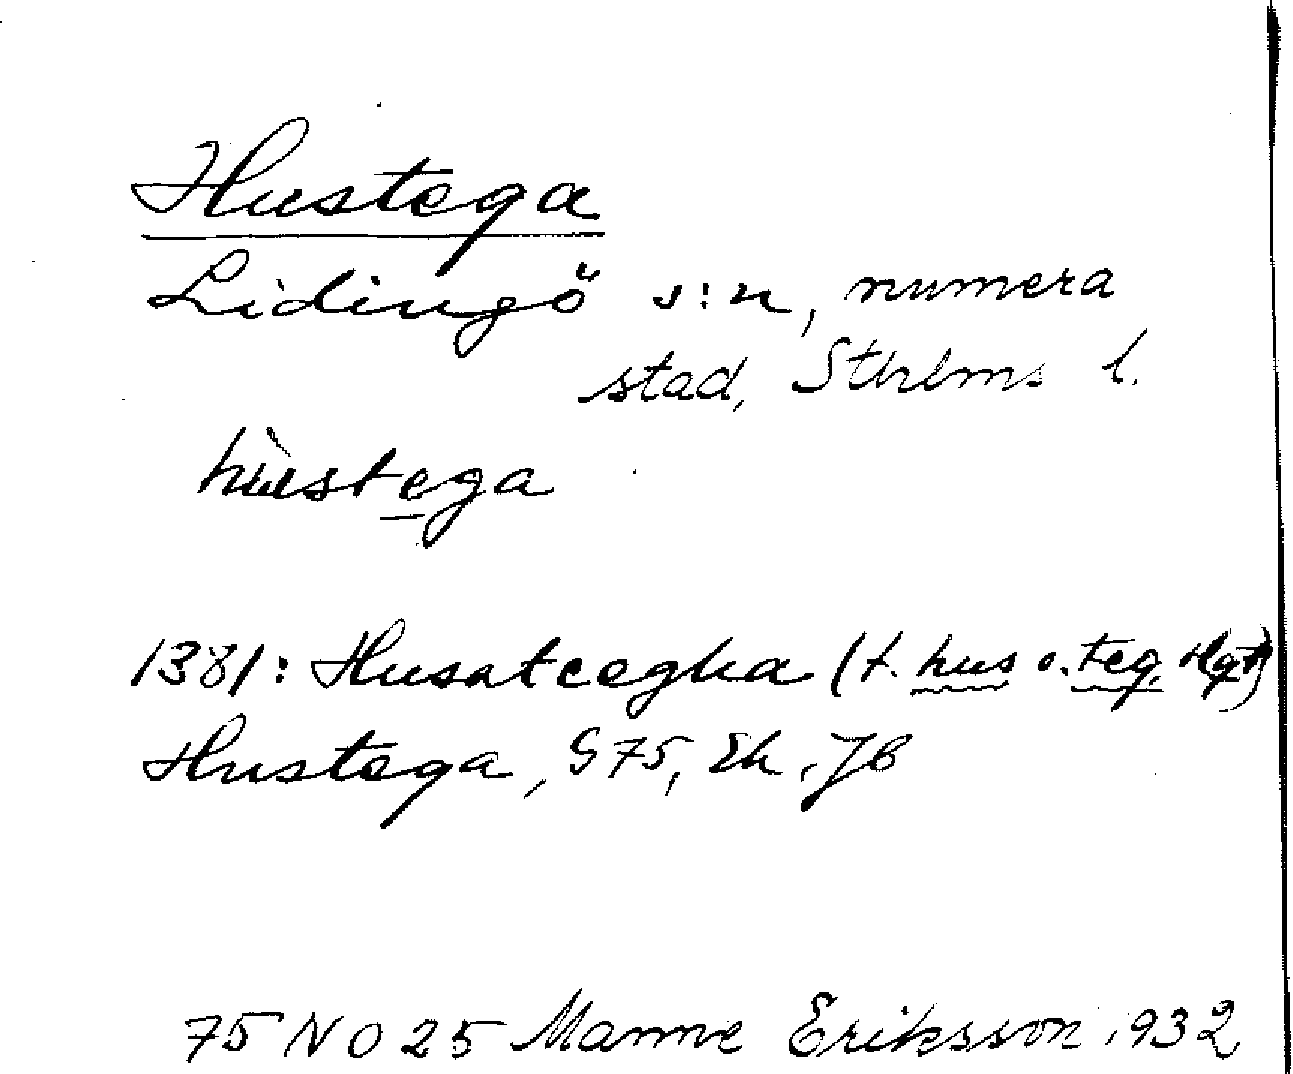 Hustega
Lidingö s:n, numera
stad, Sthlms l.
hùstega
1381: Husatæghа (t. hus o. teg, Hqt)
Hustega, G75, Ek, Jb
75 NO 25 Manne Eriksson 1932